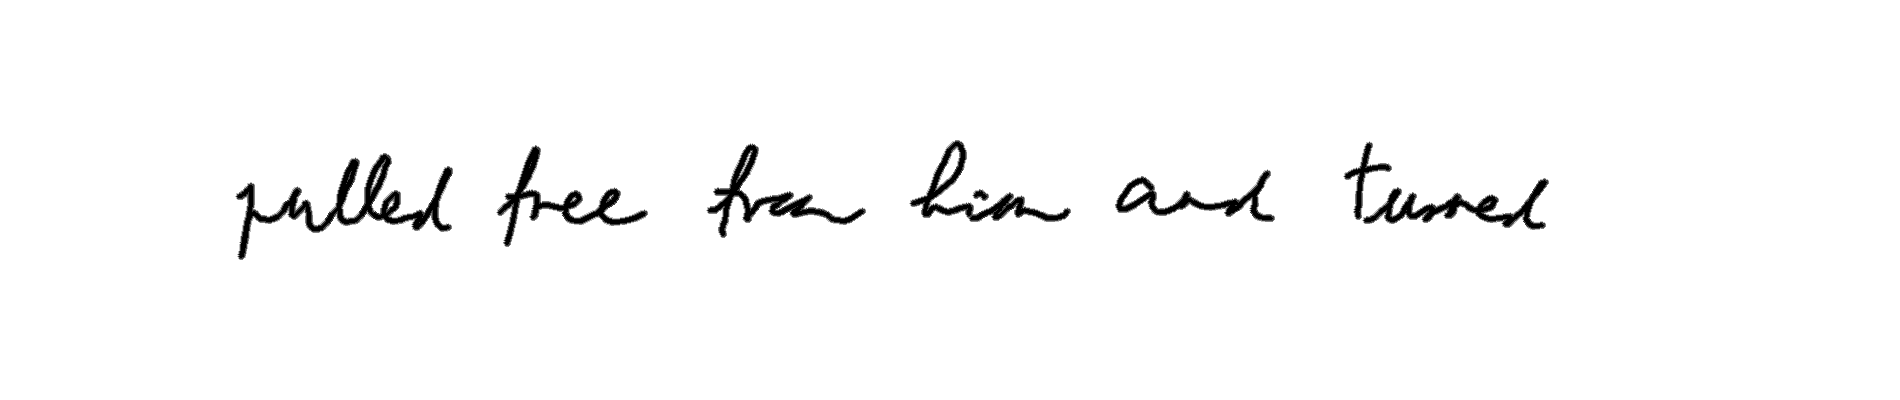 pulled free from him and turned